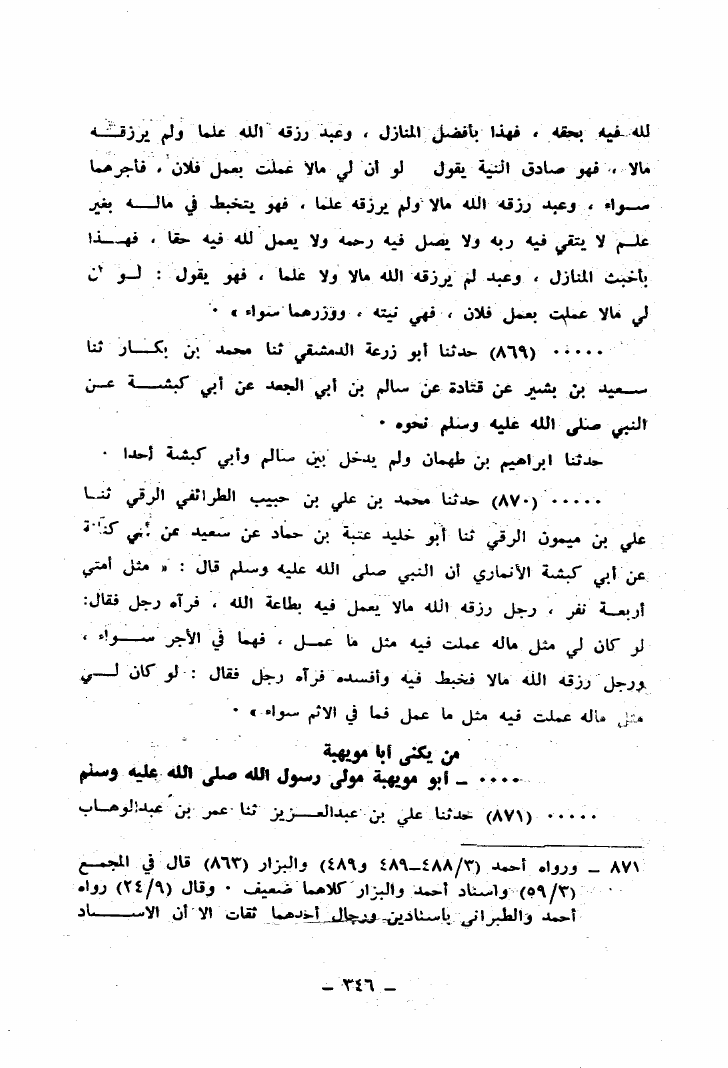 لله فيه بحقه ، فهذا بأفضل المنازل ، وعبد رزقه الله علما ولم يرزقه
مالا ، فهو صادق النية يقول لو أن لي مالا عملت بعمل فلان ، فأجرهما
سواء ، وعبد رزقه الله مالا ولم يرزقه علما ، فهو يتخبط في ماله بغير
علم لا يتقي فيه ربه ولا يصل فيه رحمه ولا يعمل لله فيه حقا ، فهذا
بأخبث المنازل ، وعبد لم يرزقه الله مالا ولا علما ، فهو يقول : لو أن
لي مالا عملت بعمل فلان ، فهي نيته ، ووزرهما سواء » ٠
٠٠٠٠٠ (٨٦٩) حدثنا أبو زرعة الدمشقي ثنا محمد بن بكار ثنا
سعيد بن بشير عن قتادة عن سالم بن أبي الجعد عن أبي كبشة عن
النبي صلى الله عليه وسلم نحوه ٠
حدثنا ابراهيم بن طهمان ولم يدخل بين سالم وأبي كبشة أحدا ٠
٠٠٠٠٠ (٨٧٠) حدثنا محمد بن علي بن حبيب الطرائفي الرقي ثنا
علي بن ميمون الرقي ثنا أبو خليد عتبة بن حماد عن سعيد عن أبي
عن أبي كبشة الأنماري أن النبي صلى الله عليه وسلم قال : « مثل أمتي
أربعة نفر ، رجل رزقه الله مالا يعمل فيه بطاعة الله ، فرآه رجل فقال:
لو كان لي مثل ماله عملت فيه مثل ما عمل ، فهما في الأجر سواء ،
ورجل رزقه الله مالا فخبط فيه وأفسده فرآه رجل فقال : لو كان لي
مثل ماله عملت فيه مثل ما عمل فما في الاثم سواء » ٠
من يكنى أبا مويهبة
٠٠٠٠ ــ أبو مويهبة مولى رسول الله صلى الله عليه وسلم
٠٠٠٠٠ (٨٧١) حدثنا علي بن عبدالعزيز ثنا عمر بن عبدالوهاب
٨٧١ ــ ورواه أحمد (٤٨٨/٣ــ٤٨٩ و٤٨٩) والبزار (٨٦٣) قال في المجمع
(٥٩/٣) واسناد أحمد والبزار كلاهما ضعيف ٠ وقال (٢٤/٩) رواه
أحمد والطبراني بأسنادين ورجال أحدهما ثقات الا أن الاسناد
ــ ٣٤٦ ــ